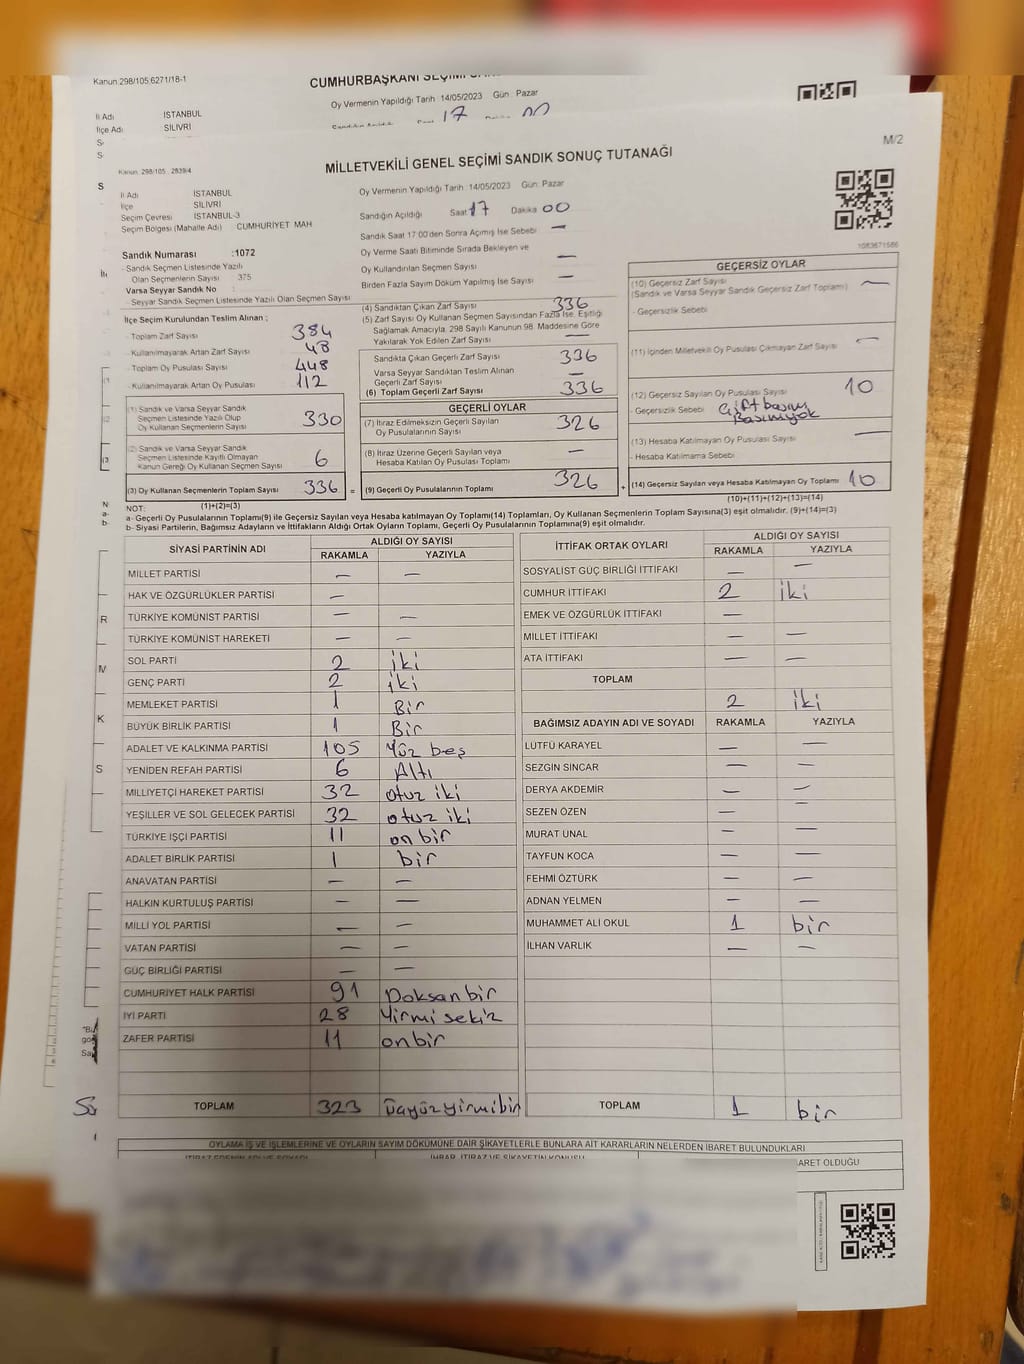 Kanun 298/105.6271/18-1
CUMHURBAŞKANI SEÇİMİ
Oy Vermenin Yapıldığı Tarih :14/05/2023 Gün : Pazar
İl Adı İSTANBUL
İlçe Adı SİLİVRİ
17 00
M/2
Kanun. 298/105 . 2839/4
MİLLETVEKİLİ GENEL SEÇİMİ SANDIK SONUÇ TUTANAĞI
İl Adı İSTANBUL
İlçe SİLİVRİ
Seçim Çevresi İSTANBUL-3
Seçim Bölgesi (Mahalle Adı) CUMHURİYET MAH
Oy Vermenin Yapıldığı Tarih :14/05/2023 Gün: Pazar
Sandığın Açıldığı Saat 17 Dakika 00
Sandık Saat 17:00'den Sonra Açımış İse Sebebi —
Oy Verme Saati Bitiminde Sırada Bekleyen ve
Oy Kullandırılan Seçmen Sayısı —
Birden Fazla Sayım Döküm Yapılmış İse Sayısı —
1083671586
Sandık Numarası :1072
- Sandık Seçmen Listesinde Yazılı
Olan Seçmenlerin Sayısı : 375
Varsa Seyyar Sandık No :
- Seyyar Sandık Seçmen Listesinde Yazılı Olan Seçmen Sayısı
İlçe Seçim Kurulundan Teslim Alınan ;
- Toplam Zarf Sayısı 384
- Kullanılmayarak Artan Zarf Sayısı 48
- Toplam Oy Pusulası Sayısı 448
- Kullanılmayarak Artan Oy Pusulası 112
(1) Sandık ve Varsa Seyyar Sandık
Seçmen Listesinde Yazılı Olup
Oy Kullanan Seçmenlerin Sayısı 330
(2) Sandık ve Varsa Seyyar Sandık
Seçmen Listesinde Kayıtlı Olmayan
Kanun Gereği Oy Kullanan Seçmen Sayısı 6
(3) Oy Kullanan Seçmenlerin Toplam Sayısı 336 =
(4) Sandıktan Çıkan Zarf Sayısı 336
(5) Zarf Sayısı Oy Kullanan Seçmen Sayısından Fazla İse, Eşitliği
Sağlamak Amacıyla, 298 Sayılı Kanunun 98. Maddesine Göre
Yakılarak Yok Edilen Zarf Sayısı —
Sandıkta Çıkan Geçerli Zarf Sayısı 336
Varsa Seyyar Sandıktan Teslim Alınan
Geçerli Zarf Sayısı —
(6) Toplam Geçerli Zarf Sayısı 336
GEÇERLİ OYLAR
(7) İtiraz Edilmeksizin Geçerli Sayılan
Oy Pusulalarının Sayısı 326
(8) İtiraz Üzerine Geçerli Sayılan veya
Hesaba Katılan Oy Pusulası Toplamı —
(9) Geçerli Oy Pusulalarının Toplamı 326 +
GEÇERSİZ OYLAR
(10) Geçersiz Zarf Sayısı
(Sandık ve Varsa Seyyar Sandık Geçersiz Zarf Toplamı) —
- Geçersizlik Sebebi
(11) İçinden Milletvekili Oy Pusulası Çıkmayan Zarf Sayısı —
(12) Geçersiz Sayılan Oy Pusulası Sayısı 10
- Geçersizlik Sebebi Çift basım
Basım yok
(13) Hesaba Katılmayan Oy Pusulası Sayısı —
- Hesaba Katılmama Sebebi
(14) Geçersiz Sayılan veya Hesaba Katılmayan Oy Toplamı 10
(1)+(2)=(3)
(10)+(11)+(12)+(13)=(14)
NOT:
a- Geçerli Oy Pusulalarının Toplamı(9) ile Geçersiz Sayılan veya Hesaba katılmayan Oy Toplamı(14) Toplamları, Oy Kullanan Seçmenlerin Toplam Sayısına(3) eşit olmalıdır. (9)+(14)=(3)
b- Siyasi Partilerin, Bağımsız Adayların ve İttifakların Aldığı Ortak Oyların Toplamı, Geçerli Oy Pusulalarının Toplamına(9) eşit olmalıdır.
SİYASİ PARTİNİN ADI ALDIĞI OY SAYISI
RAKAMLA YAZIYLA
MİLLET PARTİSİ — —
HAK VE ÖZGÜRLÜKLER PARTİSİ —
TÜRKİYE KOMÜNİST PARTİSİ — —
TÜRKİYE KOMÜNİST HAREKETİ — —
SOL PARTİ 2 iki
GENÇ PARTİ 2 iki
MEMLEKET PARTİSİ 1 Bir
BÜYÜK BİRLİK PARTİSİ 1 Bir
ADALET VE KALKINMA PARTİSİ 105 Yüz beş
YENİDEN REFAH PARTİSİ 6 Altı
MİLLİYETÇİ HAREKET PARTİSİ 32 otuz iki
YEŞİLLER VE SOL GELECEK PARTİSİ 32 otuz iki
TÜRKİYE İŞÇİ PARTİSİ 11 on bir
ADALET BİRLİK PARTİSİ 1 bir
ANAVATAN PARTİSİ — —
HALKIN KURTULUŞ PARTİSİ — —
MİLLİ YOL PARTİSİ — —
VATAN PARTİSİ — —
GÜÇ BİRLİĞİ PARTİSİ — —
CUMHURİYET HALK PARTİSİ 91 Doksan bir
İYİ PARTİ 28 Yirmi sekiz
ZAFER PARTİSİ 11 onbir
TOPLAM 323 üçyüzyirmibir
İTTİFAK ORTAK OYLARI ALDIĞI OY SAYISI
RAKAMLA YAZIYLA
SOSYALİST GÜÇ BİRLİĞİ İTTİFAKI — —
CUMHUR İTTİFAKI 2 iki
EMEK VE ÖZGÜRLÜK İTTİFAKI —
MİLLET İTTİFAKI — —
ATA İTTİFAKI — —
TOPLAM 2 iki
BAĞIMSIZ ADAYIN ADI VE SOYADI RAKAMLA YAZIYLA
LÜTFÜ KARAYEL — —
SEZGİN SİNCAR — —
DERYA AKDEMİR — —
SEZEN ÖZEN — —
MURAT ÜNAL — —
TAYFUN KOCA — —
FEHMİ ÖZTÜRK — —
ADNAN YELMEN — —
MUHAMMET ALİ OKUL 1 bir
İLHAN VARLIK — —
TOPLAM 1 bir
OYLAMA İŞ VE İŞLEMLERİNE VE OYLARIN SAYIM DÖKÜMÜNE DAİR ŞİKAYETLERLE BUNLARA AİT KARARLARIN NELERDEN İBARET BULUNDUKLARI
İHBAR, İTİRAZ VE ŞİKAYETİN KONUSU
BARET OLDUĞU